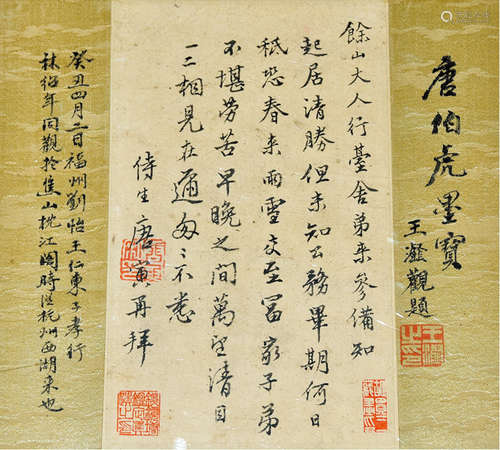 唐伯虎墨寶
王瀣觀題
王瀣之印
餘山大人行臺舍弟来參備知
起居清勝但未知公務畢期何日
秖恐春来雨雪交至冨家子弟
不堪勞苦早晚之間萬望清目
一二相見在邇匆〻不悉
侍生唐寅再拜
癸丑四月二日福州劉怡王仁東子孝行
林紹年同觀於焦山枕江閣時從杭州西湖来也